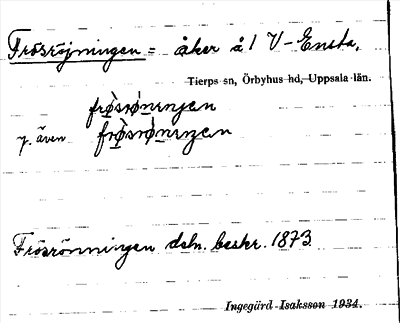 Frösröjningen = åker å V-Ensta,
Tierps sn, Örbyhus hd, Uppsala län.
frø̀srø̀nıngen
även frø̀srø̀nıngen
Frösrönningen dsln. beskr. 1873
Ingegärd Isaksson 1934.